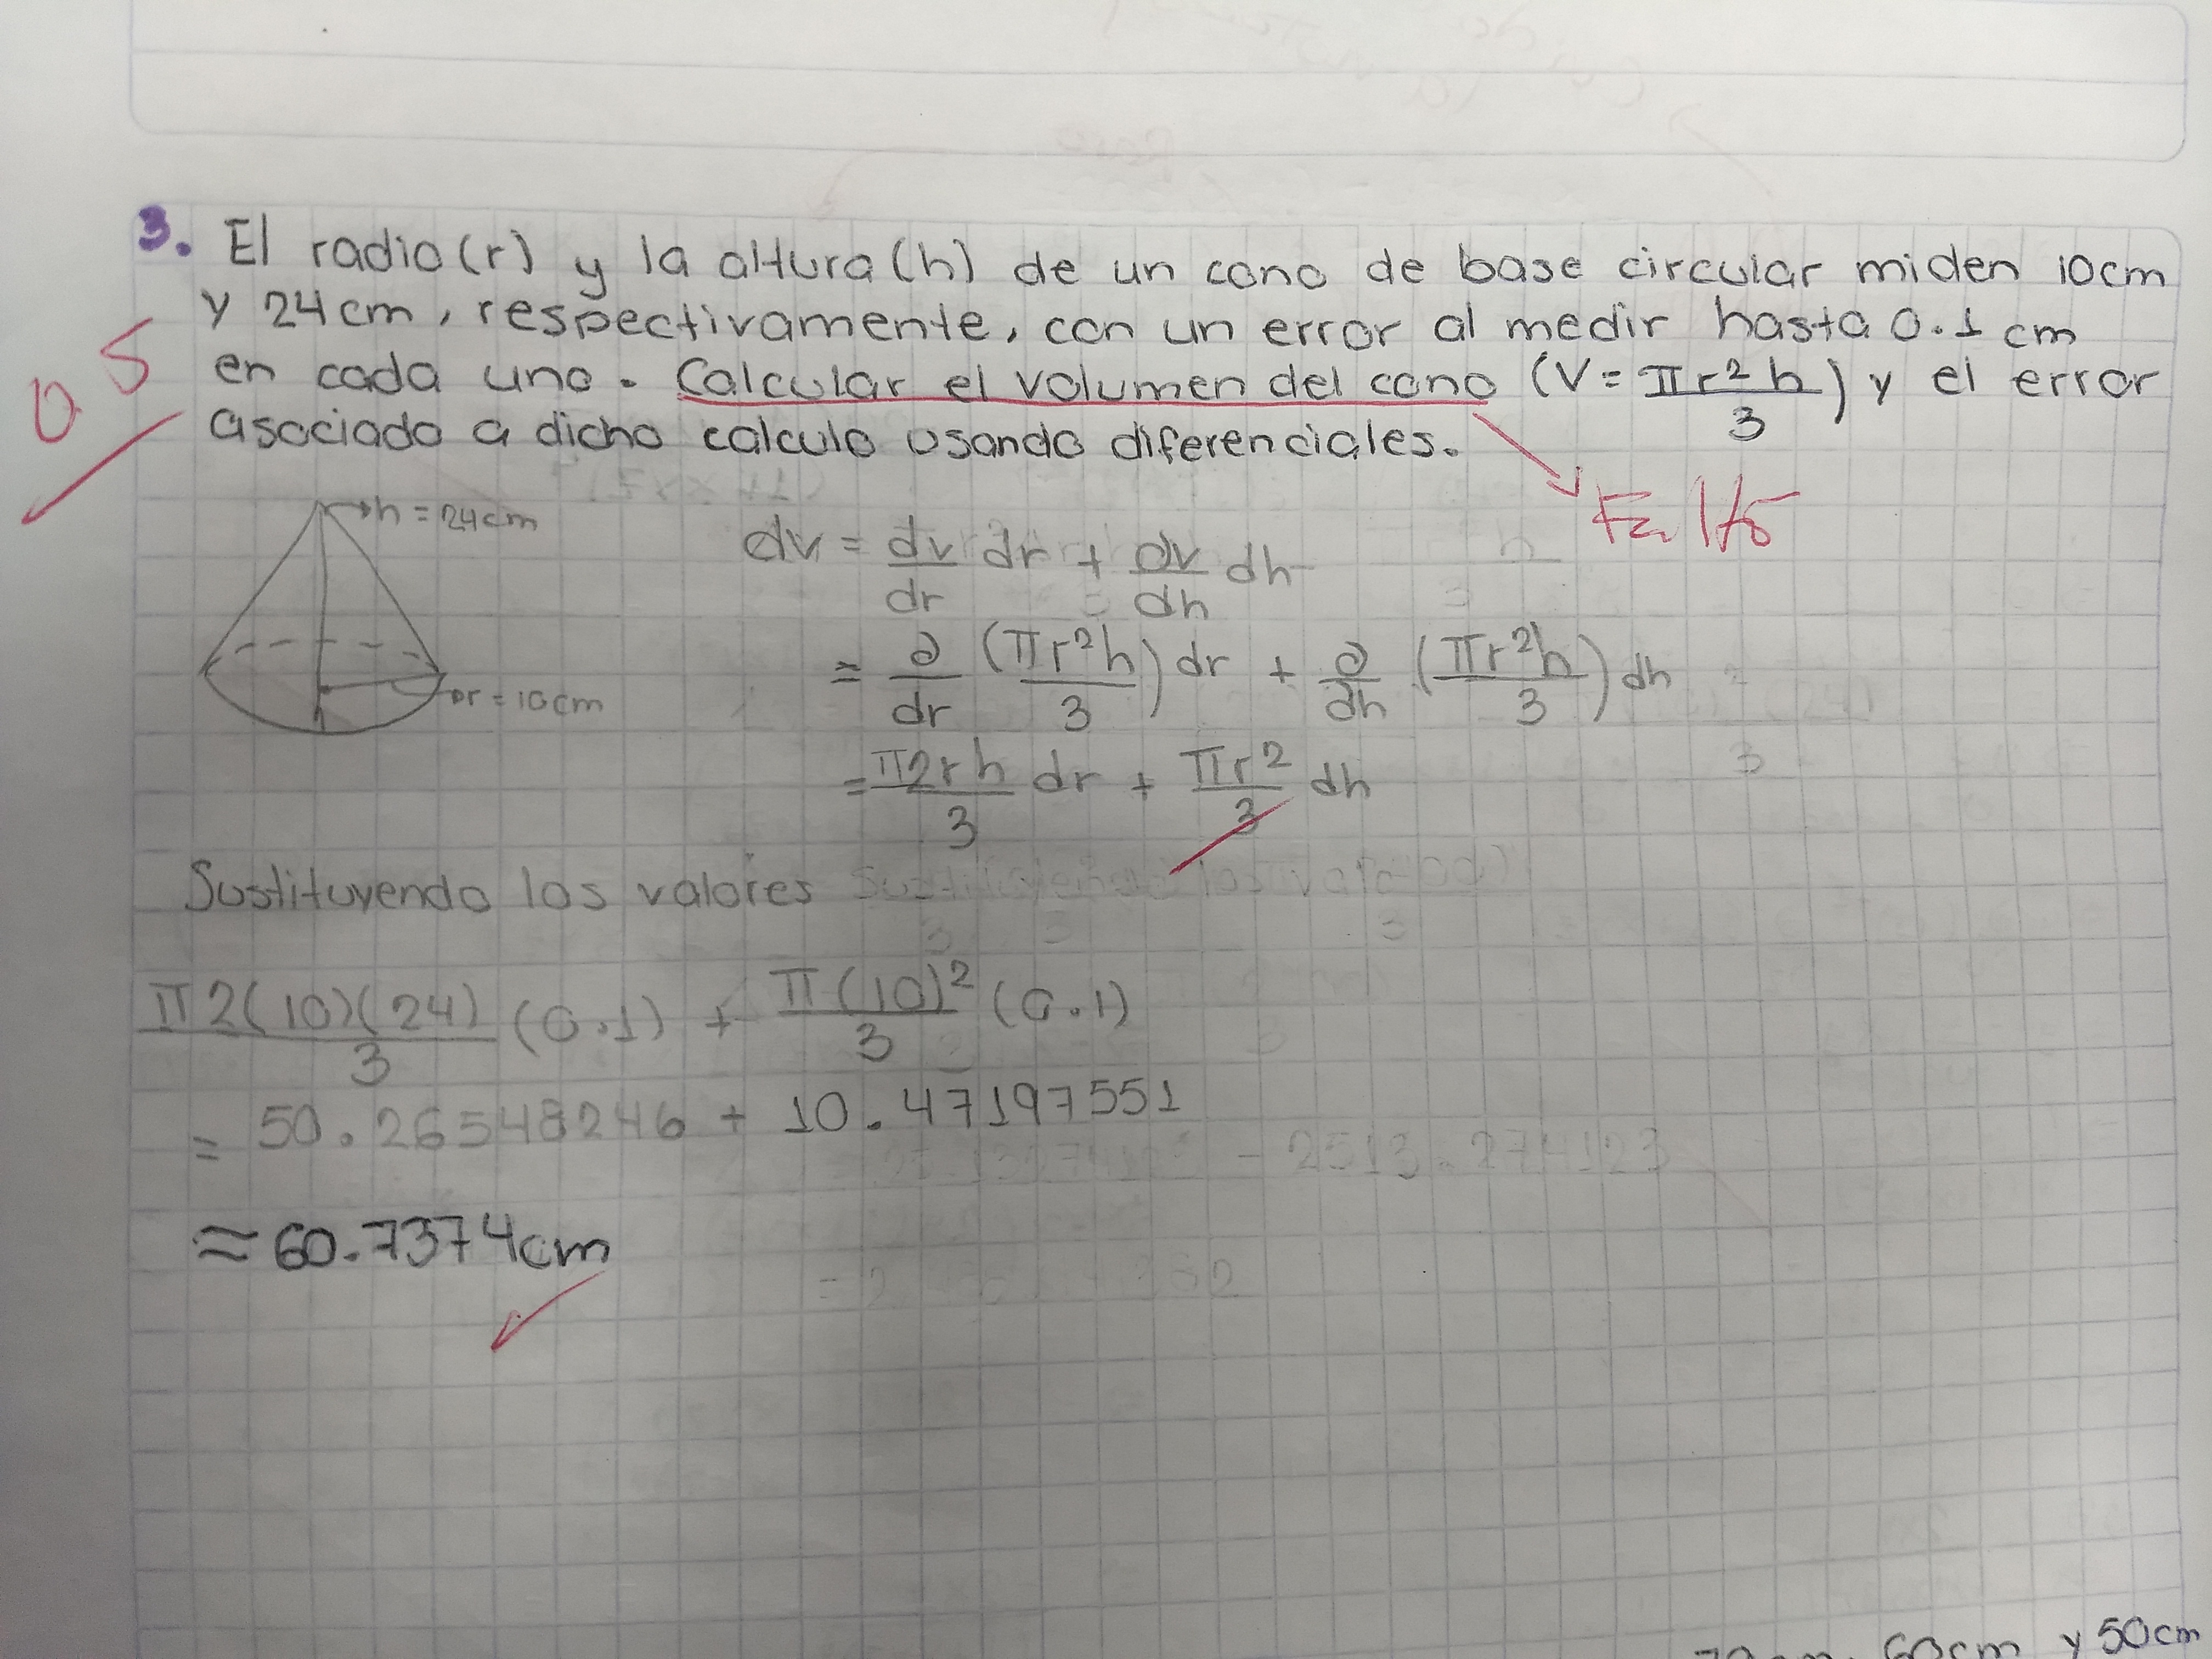 3. El radio(r) y la altura(h) de un cono de base circular miden 10cm
y 24cm, respectivamente, con un error al medir hasta 0.1 cm
en cada uno. Calcular el volumen del cono (V = πr²h/3) y el error
asociado a dicho calculo usando diferenciales.
0.5
Faltó
h = 24cm
r = 10cm
dv = dv/dr dr + ∂v/∂h dh
= ∂/dr (πr²h/3) dr + ∂/∂h (πr²h/3) dh
= π2rh/3 dr + πr²/3 dh
Sustituyendo los valores
π2(10)(24)/3 (0.1) + π(10)²/3 (0.1)
= 50.26548246 + 10.47197551
≈ 60.7374cm
60cm y 50cm